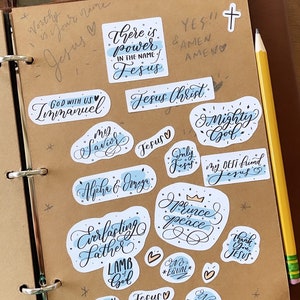 Worthy
is Your name
Jesus
YES
& AMEN
AMEN
There is
power
IN THE NAME of
Jesus
GOD WITH US
Immanuel
Jesus Christ
my
Savior
Jesus
Almighty
God
Only
Jesus
my BEST friend
Jesus
Alpha & Omega
Prince
of
peace
Everlasting
Father
Thank
you
JESUS
LAMB
of
God
NO
EQUAL
Jesus